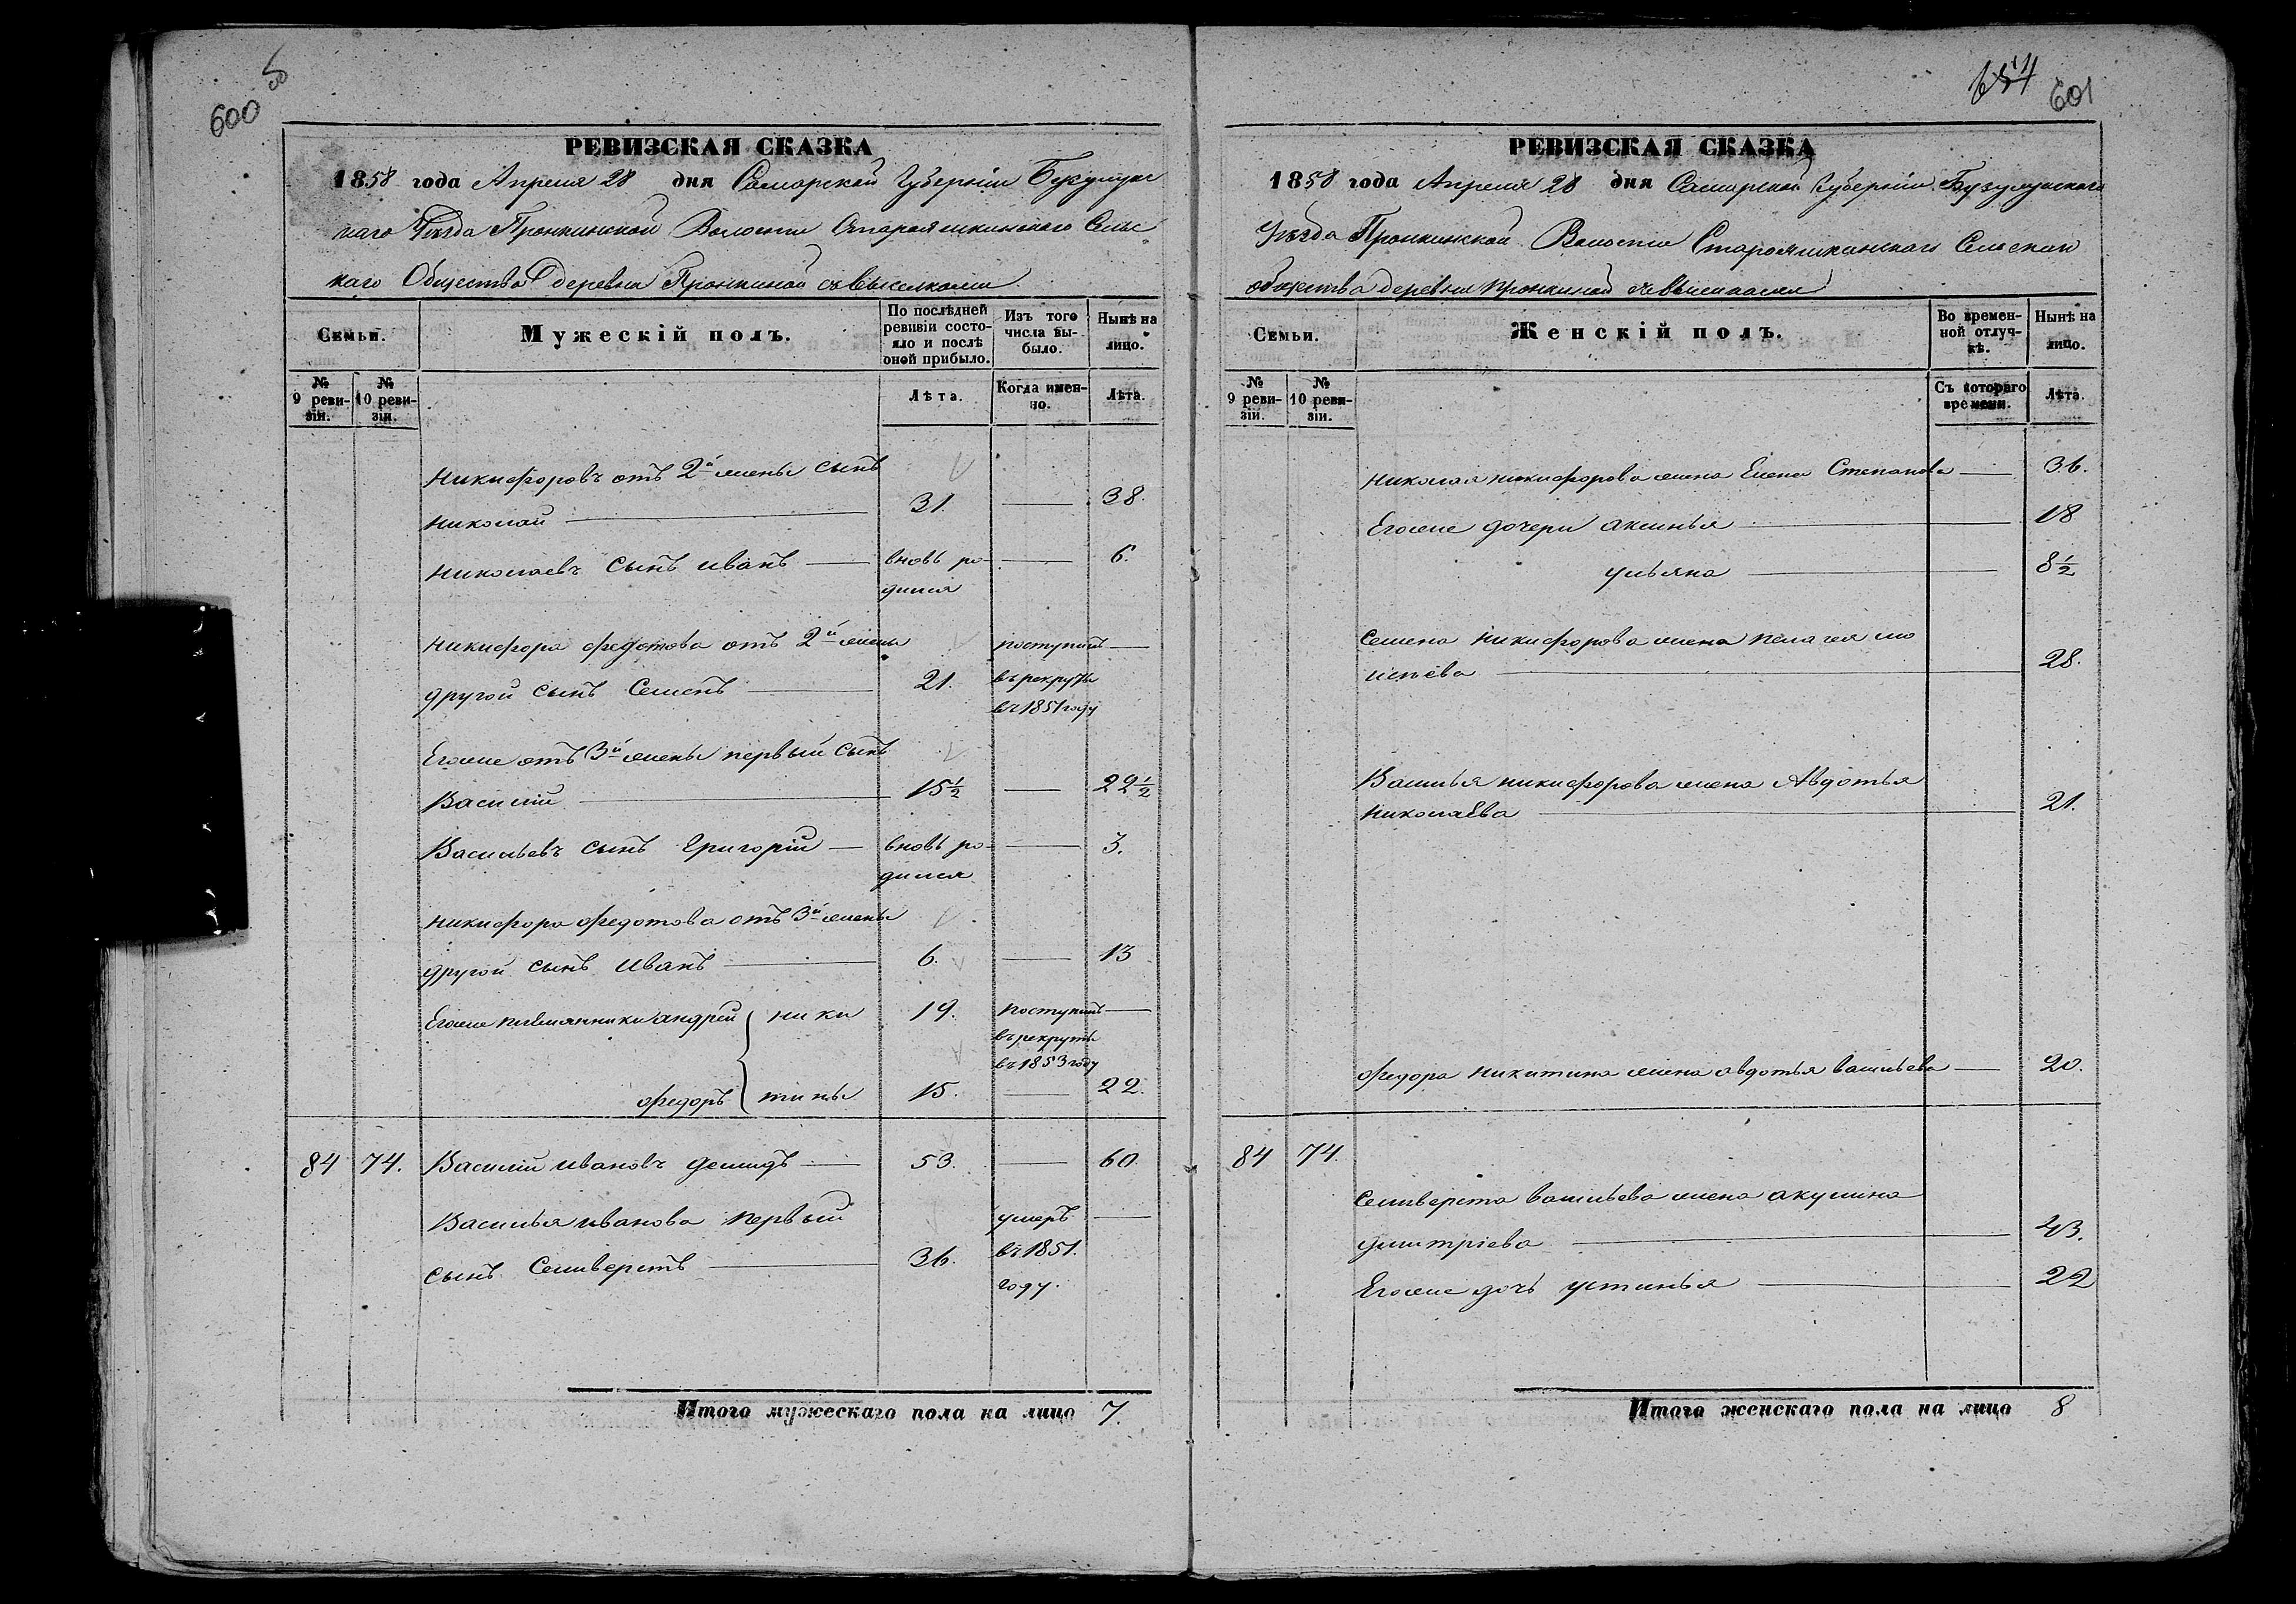 600
РЕВИЗСКАЯ СКАЗКА
1858 года Апреля 28 дня Самарской Губернiи Бузулук
скаго Уѣзда Пронкинской Волости Старояшкинскаго Сельс
каго Общества деревни Пронкиной съ выселками
Семьи.
Мужескій полъ.
По послѣдней ревизіи состо-яло и послѣ оной прибыло.
Изъ того числа вы-было.
Нынѣ на лицо.
№ 9 реви-зіи.
№ 10 реви-зіи.
Лѣта.
Когда имен-но.
Лѣта.
Никифоровъ отъ 2й жены сынъ
Николай 31. 38.
Николаевъ сынъ Иванъ вновь ро- 6.
дился
Никифора Федотова отъ 2й жены поступилъ
другой сынъ Семенъ 21. въ рекруты
въ 1851 году
Егоже отъ 3й жены первый сынъ
Василiй 15½ 22½
Васильевъ сынъ Григорiй вновь ро- 3.
дился
Никифора Федотова отъ 3й жены
другой сынъ Иванъ 6. 13
Егоже племянники Андрей ники 19. поступилъ
въ рекруты
въ 1853 году
Федоръ тины 15. 22.
84 74. Василiй Ивановъ Демидъ 53. 60.
Василья Иванова первый умеръ
сынъ Селиверстъ 36. въ 1851.
году.
Итого мужескаго пола на лицо 7.
654 601
РЕВИЗСКАЯ СКАЗКА
1858 года Апреля 28 дня Самарской Губернiи Бузулукскаго
Уѣзда Пронкинской Волости Старояшкинскаго Сельскаго
общества деревни Пронкиной съ выселками
Семьи.
Женскій полъ.
Во времен-ной отлуч-кѣ.
Нынѣ на лицо.
№ 9 реви-зіи.
№ 10 реви-зіи.
Съ котораго времени.
Лѣта.
Николая Никифорова жена Елена Степанова 36.
Егоже дочери Аксинья 18
Ульяна 8½
Семена Никифорова жена Пелагея мо
исѣева 28.
Василья Никифорова жена Авдотья
Николаева 21.
Федора Никитина жена Авдотья Васильева 20.
84 74.
Селиверста Васильева жена Акулина
Дмитрiева 43.
Егоже дочь Устинья 22
Итого женскаго пола на лицо 8